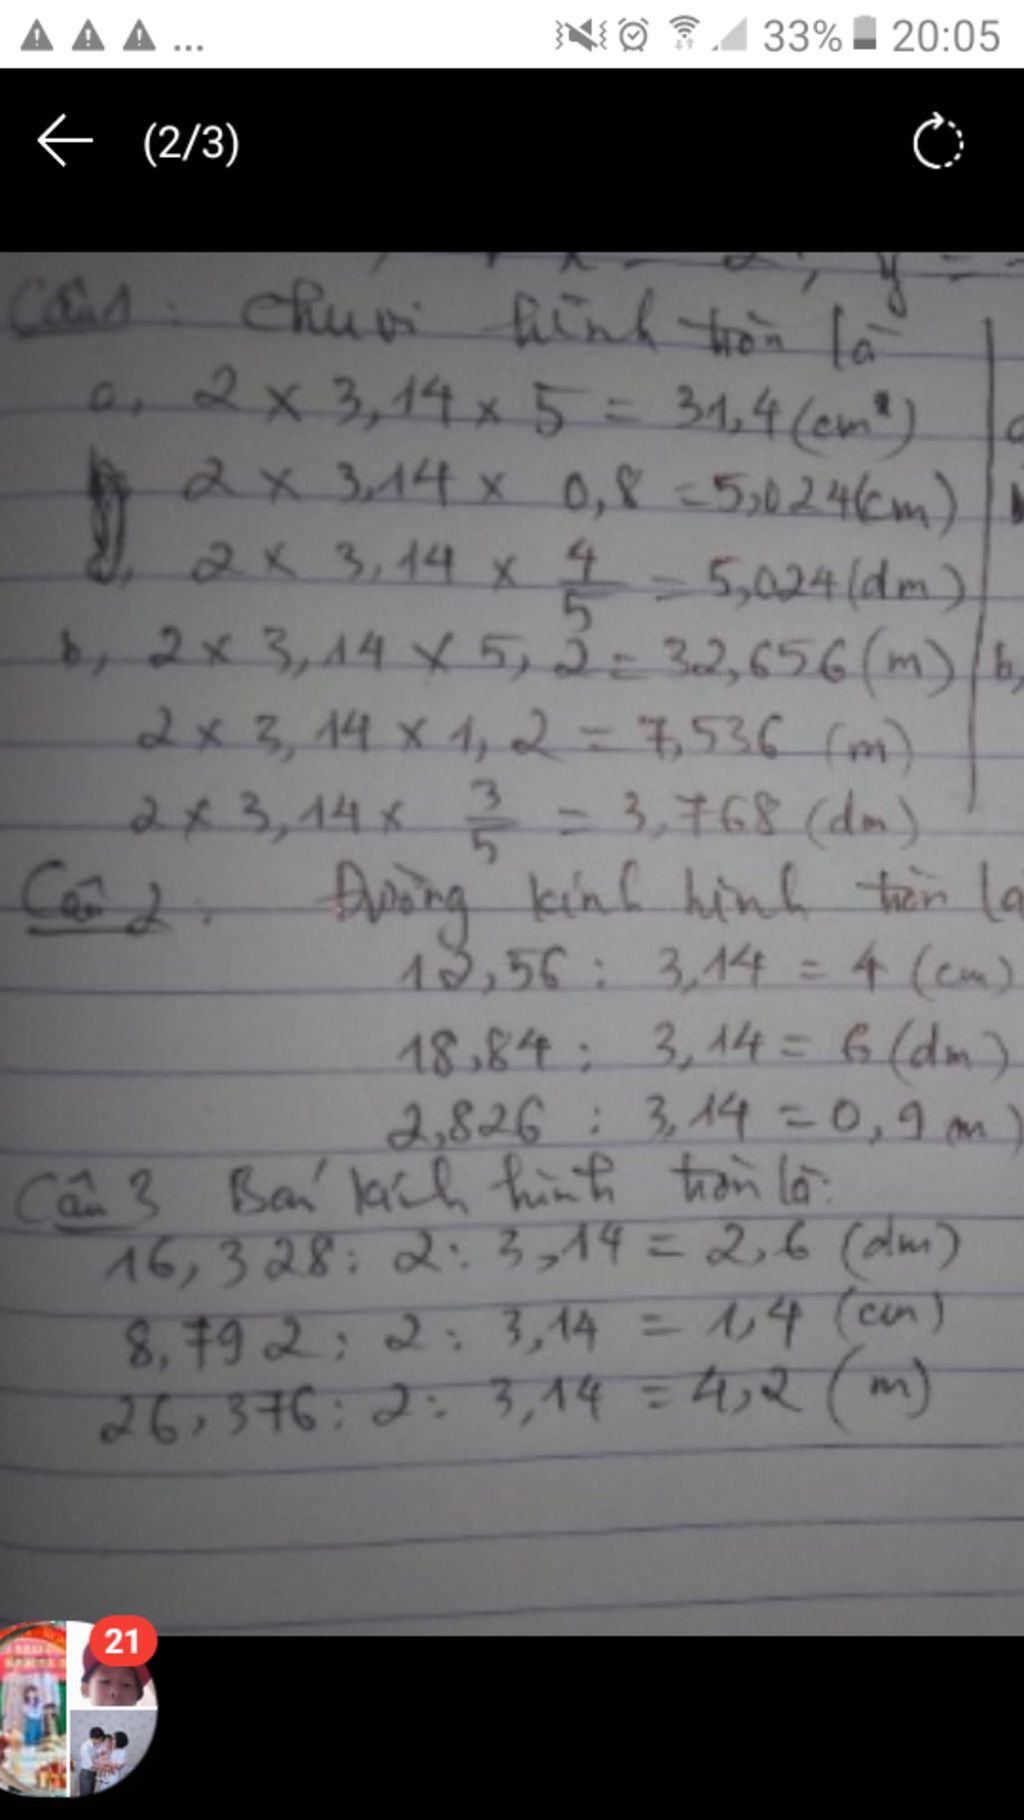 33% 20:05
(2/3)
Câu 1: Chu vi hình tròn là
a, 2 x 3,14 x 5 = 31,4 (cm)
2 x 3,14 x 0,8 = 5,024 (cm)
2 x 3,14 x 4/5 = 5,024 (dm)
b, 2 x 3,14 x 5,2 = 32,656 (m)
b,
2 x 3,14 x 1,2 = 7,536 (m)
2 x 3,14 x 3/5 = 3,768 (dm)
Câu 2: Đường kính hình tròn là
12,56 : 3,14 = 4 (cm)
18,84 : 3,14 = 6 (dm)
2,826 : 3,14 = 0,9 m)
Câu 3 Bán kính hình tròn là:
16,328 : 2 : 3,14 = 2,6 (dm)
8,792 : 2 : 3,14 = 1,4 (cm)
26,376 : 2 : 3,14 = 4,2 (m)
21